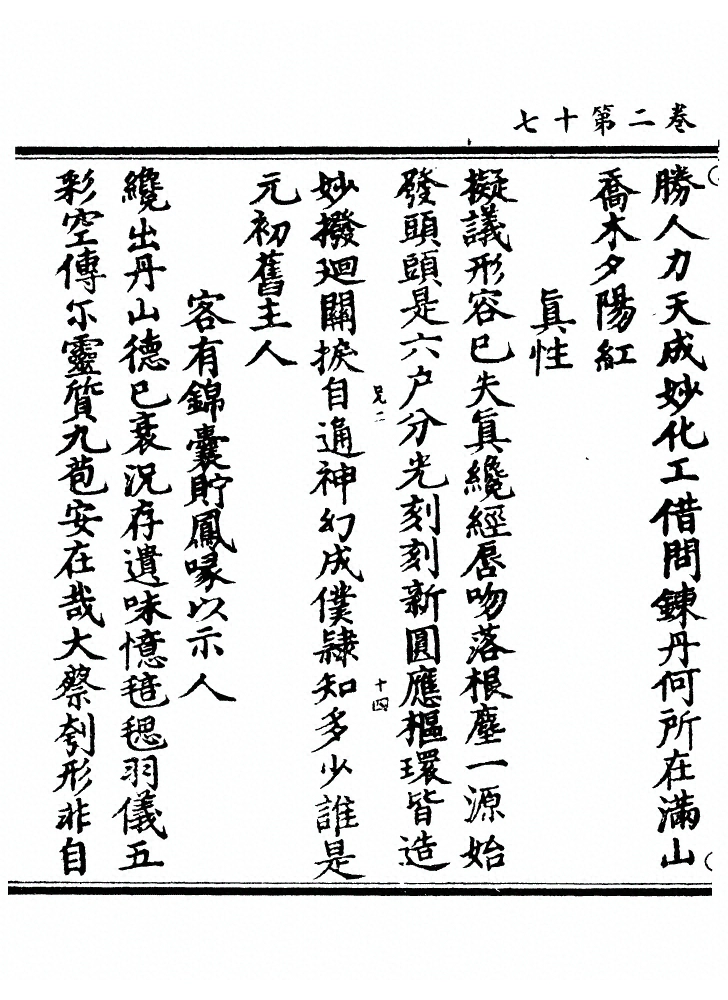 卷二第十七
勝人力天成妙化工借問鍊丹何所在滿山
喬木夕陽紅
眞性
擬議形容已失眞纔經唇吻落根塵一源始
發頭頭是六户分光刻刻新圓應樞環皆造
兄二
十四
妙撥廻關捩自通神幻成僕隷知多少誰是
元初舊主人
客有錦囊貯鳳喙以示人
纔出丹山德已衰況存遺味憶毰毸羽儀五
彩空傳尓靈質九苞安在哉大祭刳形非自